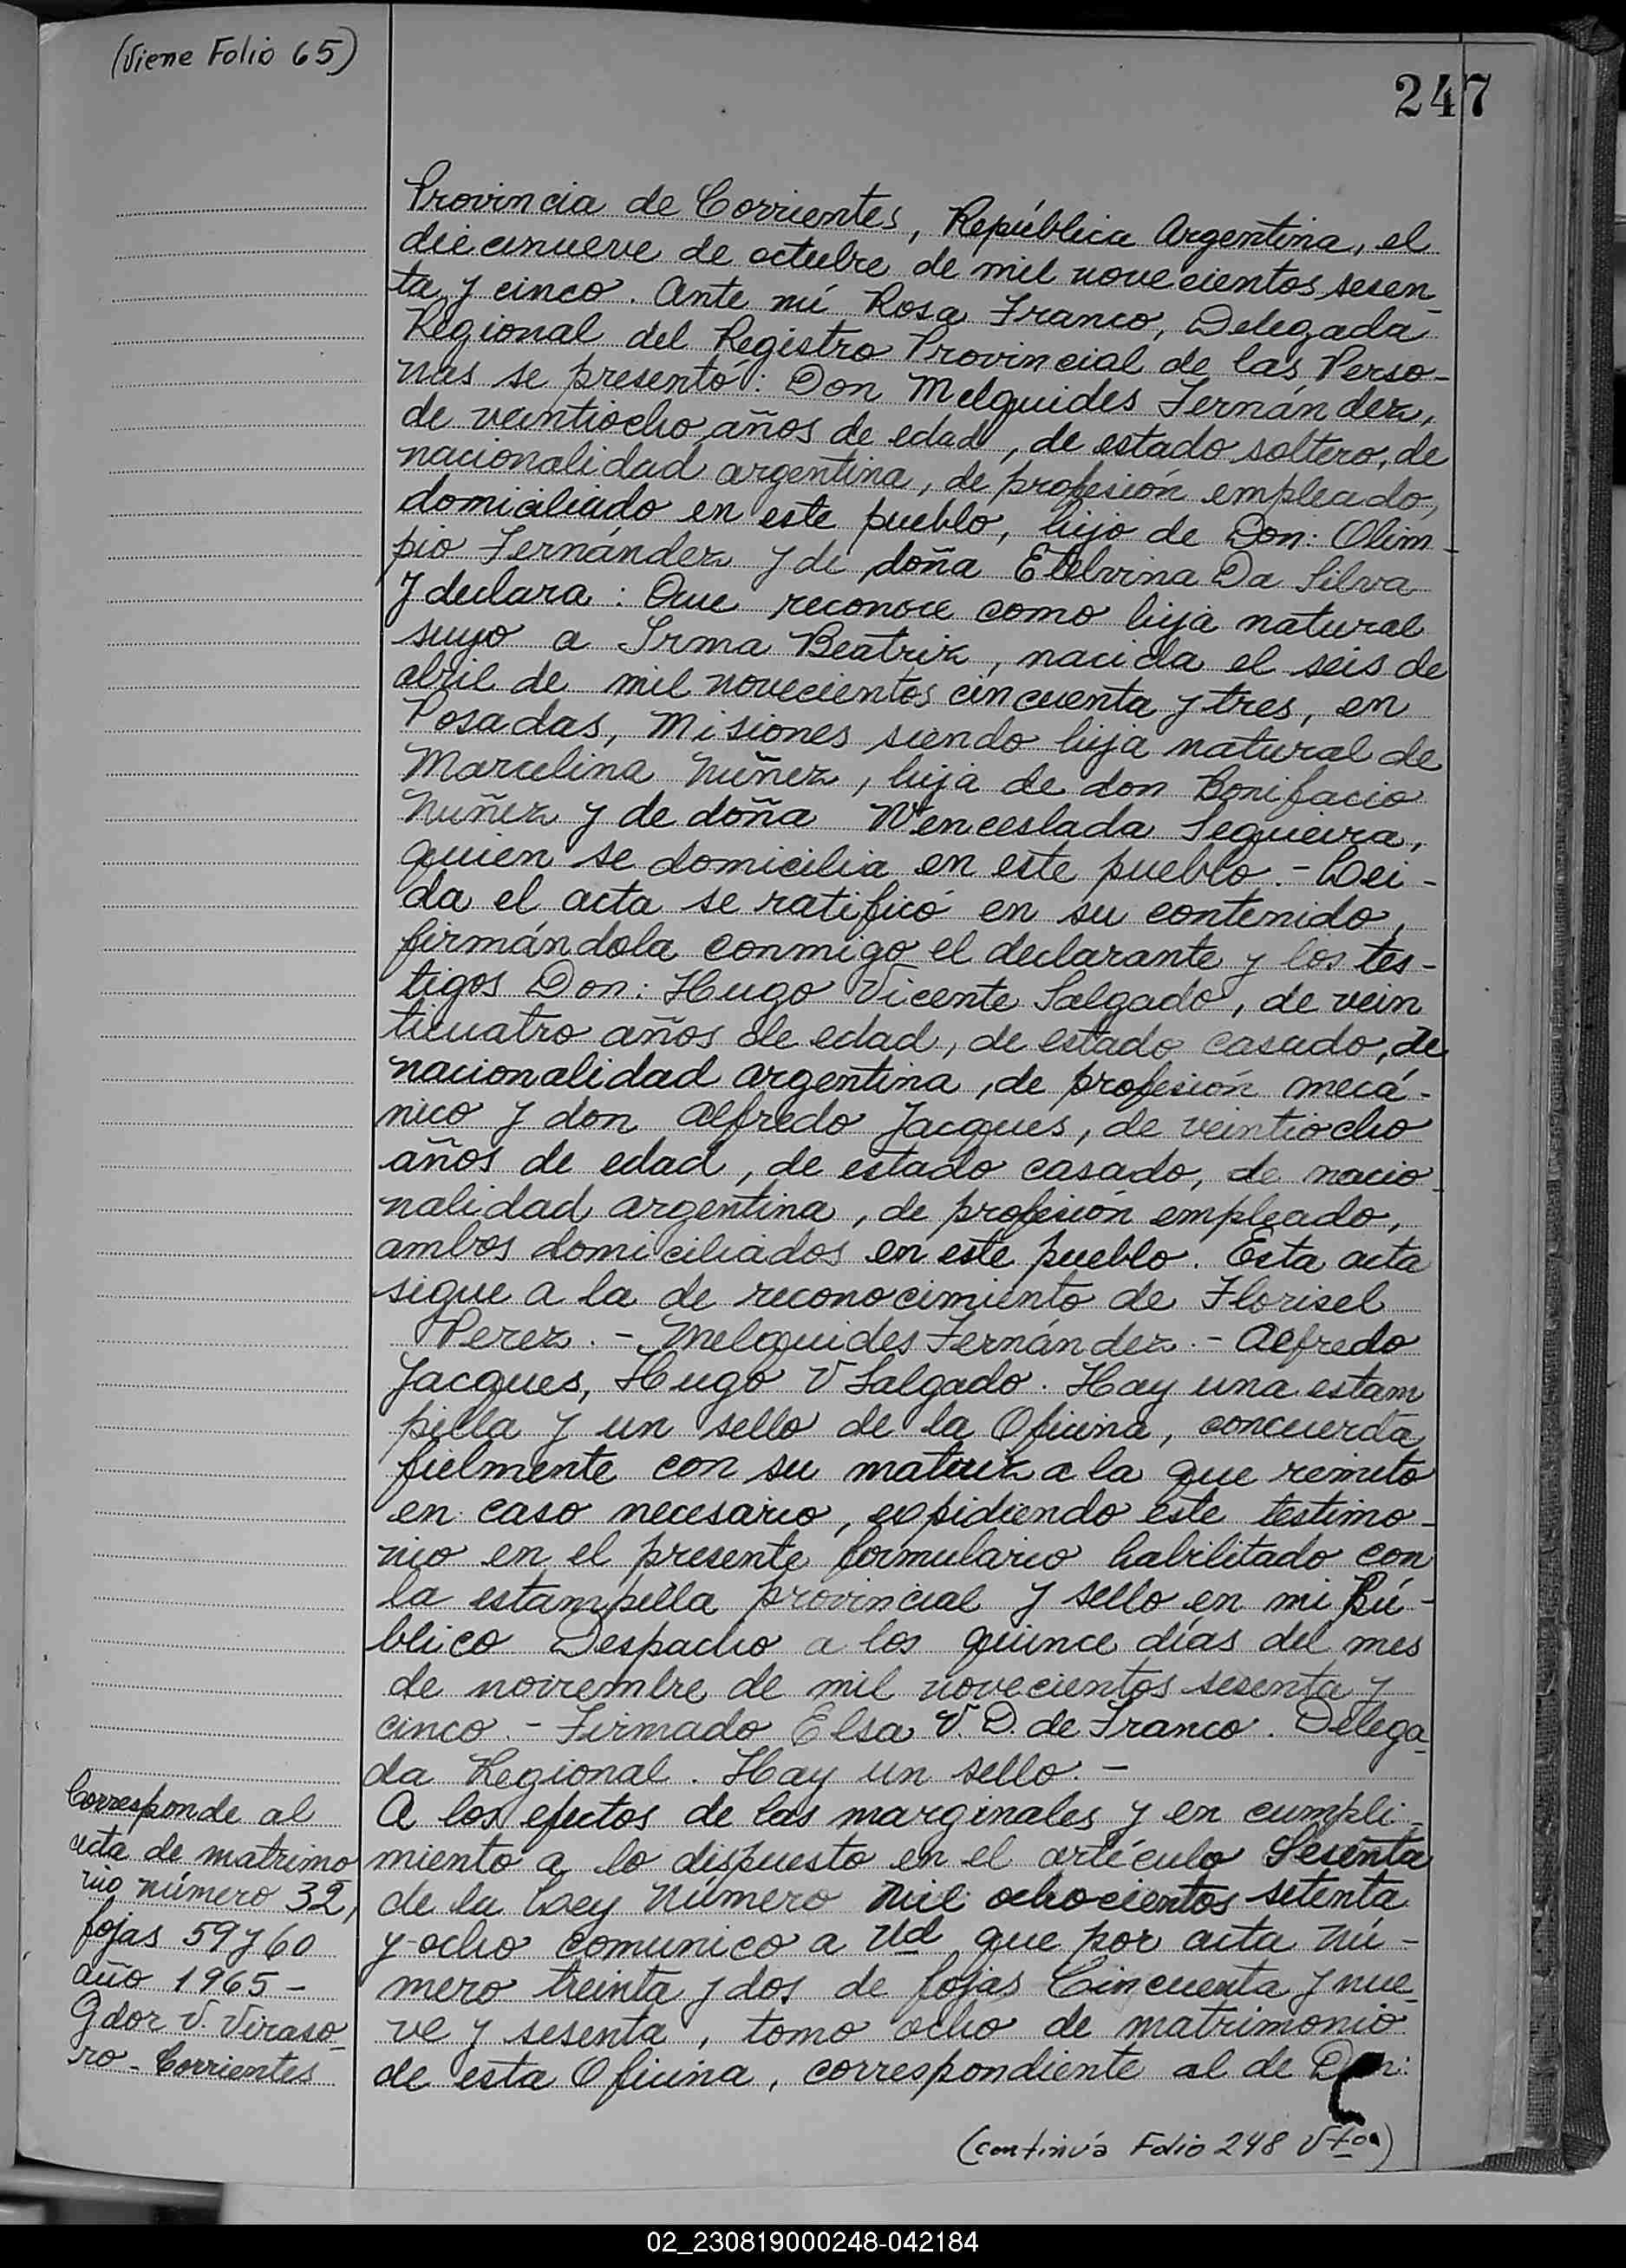 (Viene Folio 65)
247
Provincia de Corrientes, República Argentina, el
diecinueve de octubre de mil novecientos sesen
ta y cinco. Ante mí Rosa Franco, Delegada
Regional del Registro Provincial de las Perso-
nas se presentó: Don Melquides Fernández,
de veintiocho años de edad, de estado soltero, de
nacionalidad argentina, de profesión empleado,
domiciliado en este pueblo, hijo de Don: Olim-
pio Fernández y de doña Etelvina Da Silva
y declara: Que reconoce como hija natural
suyo a Irma Beatriz, nacida el seis de
abril de mil novecientos cincuenta y tres, en
Posadas, Misiones siendo hija natural de
Marcelina Nuñez, hija de don Bonifacio
Nuñez y de doña Wenceslada Segueira,
quien se domicilia en este pueblo.- Lei-
da el acta se ratificó en su contenido,
firmándola conmigo el declarante y los tes-
tigos Don: Hugo Vicente Salgado, de vein
ticuatro años de edad, de estado casado, de
nacionalidad argentina, de profesión mecá-
nico y don Alfredo Jacques, de veintiocho
años de edad, de estado casado, de nacio
nalidad argentina, de profesión empleado,
ambos domiciliados en este pueblo. Esta acta
sigue a la de reconocimiento de Florisel
Perez.- Melquides Fernández.- Alfredo
Jacques, Hugo V Salgado. Hay una estam
pilla y un sello de la Oficina, concuerda
fielmente con su matriz a la que remito
en caso necesario, expidiendo este testimo-
nio en el presente formulario habilitado con
la estampilla provincial y sello en mi Pú-
blico Despacho a los quince días del mes
de noviembre de mil novecientos sesenta y
cinco.- Firmado Elsa V. D. de Franco. Delega-
da Regional. Hay un sello.-
A los efectos de las marginales y en cumpli-
miento a lo dispuesto en el artículo Sesenta
de la Ley Número mil ochocientos setenta
y ocho comunico a Ud que por acta nú-
mero treinta y dos de fojas Cincuenta y nue-
ve y sesenta, tomo ocho de matrimonio
de esta Oficina, correspondiente al de Don:
Corresponde al
acta de matrimo
nio número 32,
fojas 59 y 60
año 1965-
Gdor V. Viraso-
ro- Corrientes
(continúa Folio 248 Vto)
02_230819000248-042184